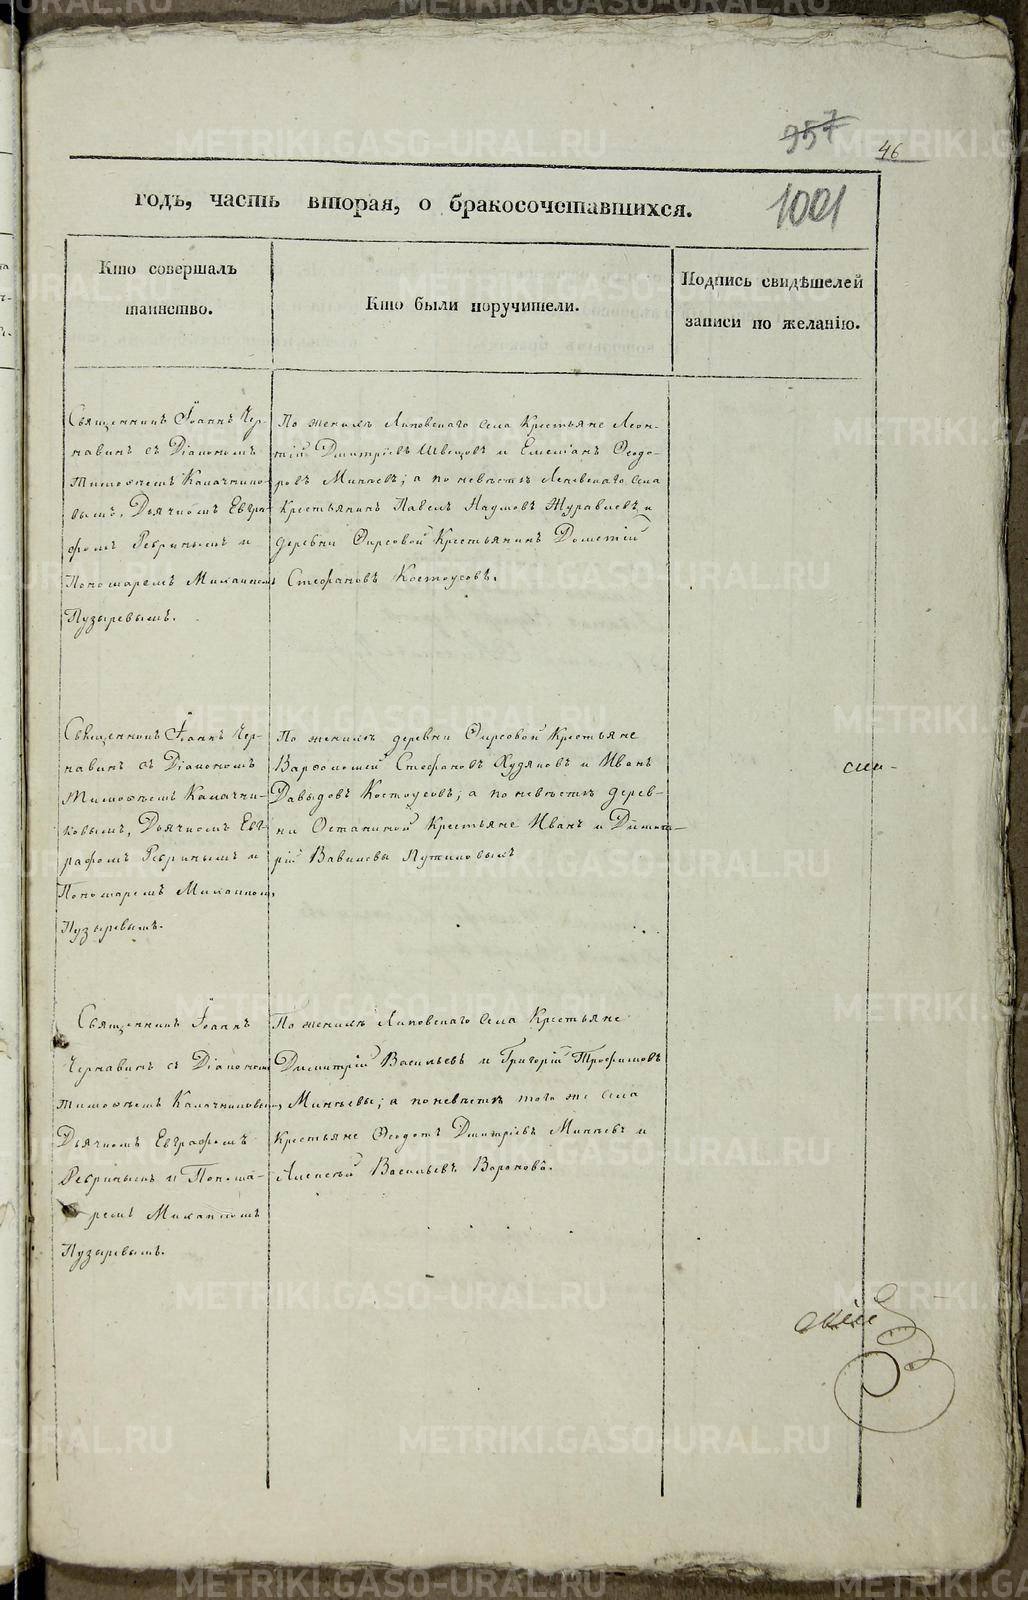 957
46
годъ, часть вторая, о бракосочетавшихся.
1001
Кто совершалъ
таинство.
Кто были поручители.
Подпись свидѣтелей
записи по желанію.
Священникъ Іоаннъ Чер-
навинъ съ Діакономъ
Тимоѳеемъ Калачнико-
вымъ, Дьячкомъ Евгра-
фомъ Ребринымъ и
Пономаремъ Михаиломъ
Пузыревымъ.
По женихѣ Липовскаго села Крестьяне Леон-
тій Дмитріевъ Швецовъ и Емеліанъ Ѳеодо-
ровъ Минѣевъ; а по невѣстѣ Леневскаго села
Крестьянинъ Павелъ Наумовъ Журавлевъ и
деревни Фирсовой Крестьянинъ Дометій
Стефановъ Костоусовъ.
Священникъ Іоаннъ Чер-
навинъ съ Діакономъ
Тимоѳеемъ Калачни-
ковымъ, Дьячкомъ Евг-
рафомъ Ребринымъ и
Пономаремъ Михаиломъ
Пузыревымъ.
По женихѣ деревни Фирсовой Крестьяне
Варѳоломей Стефановъ Худяковъ и Иванъ
Давыдовъ Костоусовъ; а по невѣстѣ дерев-
ни Останиной Крестьяне Иванъ и Димит-
рій Вавиловы Лутиковыхъ
Священникъ Іоаннъ
Чернавинъ съ Діакономъ
Тимоѳеемъ Калачниковымъ,
Дьячкомъ Евграфомъ
Ребринымъ и Понома-
ремъ Михаиломъ
Пузыревымъ.
По женихѣ Липовскаго села Крестьяне
Димитрій Васильевъ и Григорій Трофимовъ
Минѣевы; а по невѣстѣ того же села
Крестьяне Ѳеодотъ Дмитріевъ Минѣевъ и
Алексѣй Васильевъ Вороновъ.
METRIKI.GASO-URAL.RU